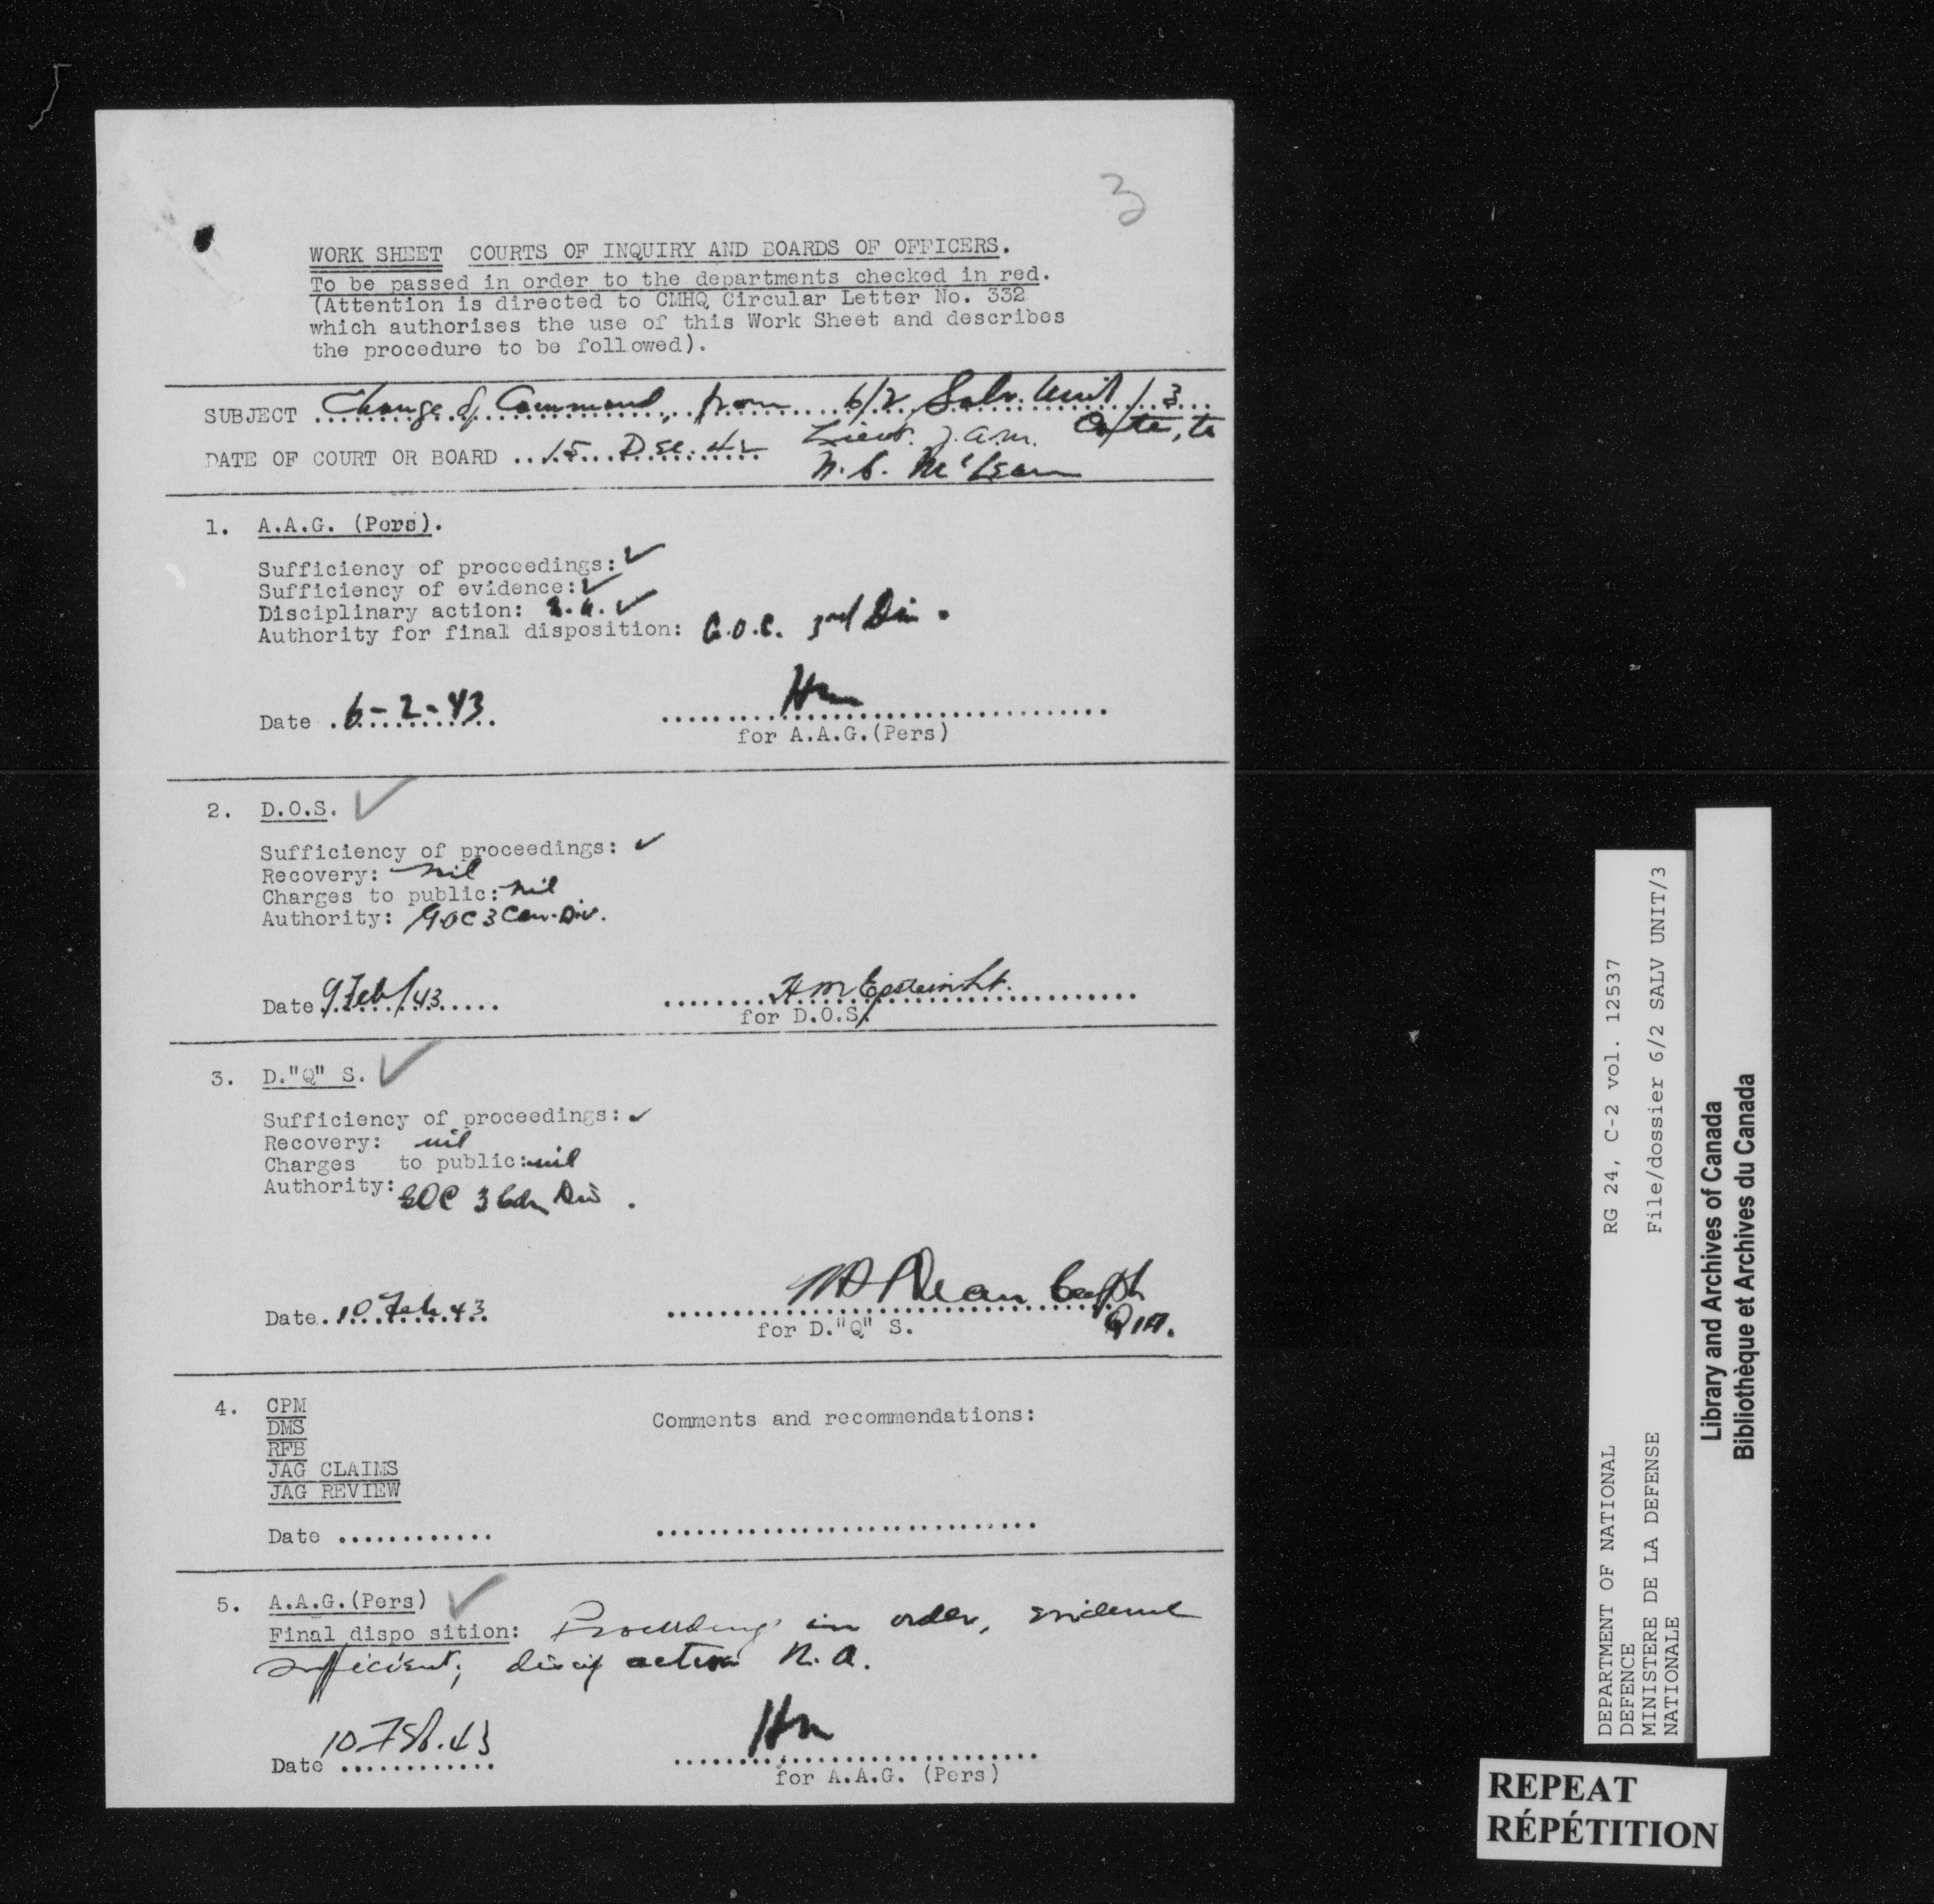 3
WORK SHEET COURTS OF INQUIRY AND BOARDS OF OFFICERS.
To be passed in order to the departments checked in red.
(Attention is directed to CMHQ Circular Letter No. 332
which authorises the use of this Work Sheet and describes
the procedure to be followed).
SUBJECT Change of Command, from 6/2 Salv. Unit / 3
Lieut. J.A.M. Coté, to
DATE OF COURT OR BOARD 15 Dec. 42 N.B. McLean
1. A.A.G. (Pers).
Sufficiency of proceedings: ✓
Sufficiency of evidence: ✓
Disciplinary action: n.a. ✓
Authority for final disposition: G.O.C. 3rd Div.
Date 6-2-43
for A.A.G.(Pers)
2. D.O.S. ✓
Sufficiency of proceedings: ✓
Recovery: nil
Charges to public: nil
Authority: GOC 3 Can. Div.
Date 9 Feb/43 HM Epstein Lt.
for D.O.S.
3. D."Q" S. ✓
Sufficiency of proceedings: ✓
Recovery: nil
Charges to public: nil
Authority: GOC 3 Cdn Div.
Date 10 Feb 43 Dean Capt
for D."Q" S.
4. CPM Comments and recommendations:
DMS
RFB
JAG CLAIMS
JAG REVIEW
Date
5. A.A.G.(Pers) ✓
Final dispo sition: Proceedings in order, evidence
sufficient; discip action N.A.
Date 10 Feb. 43
for A.A.G. (Pers)
DEPARTMENT OF NATIONAL DEFENCE
MINISTERE DE LA DEFENSE NATIONALE
RG 24, C-2 vol. 12537
File/dossier 6/2 SALV UNIT/3
Library and Archives of Canada
Bibliothèque et Archives du Canada
REPEAT
RÉPÉTITION